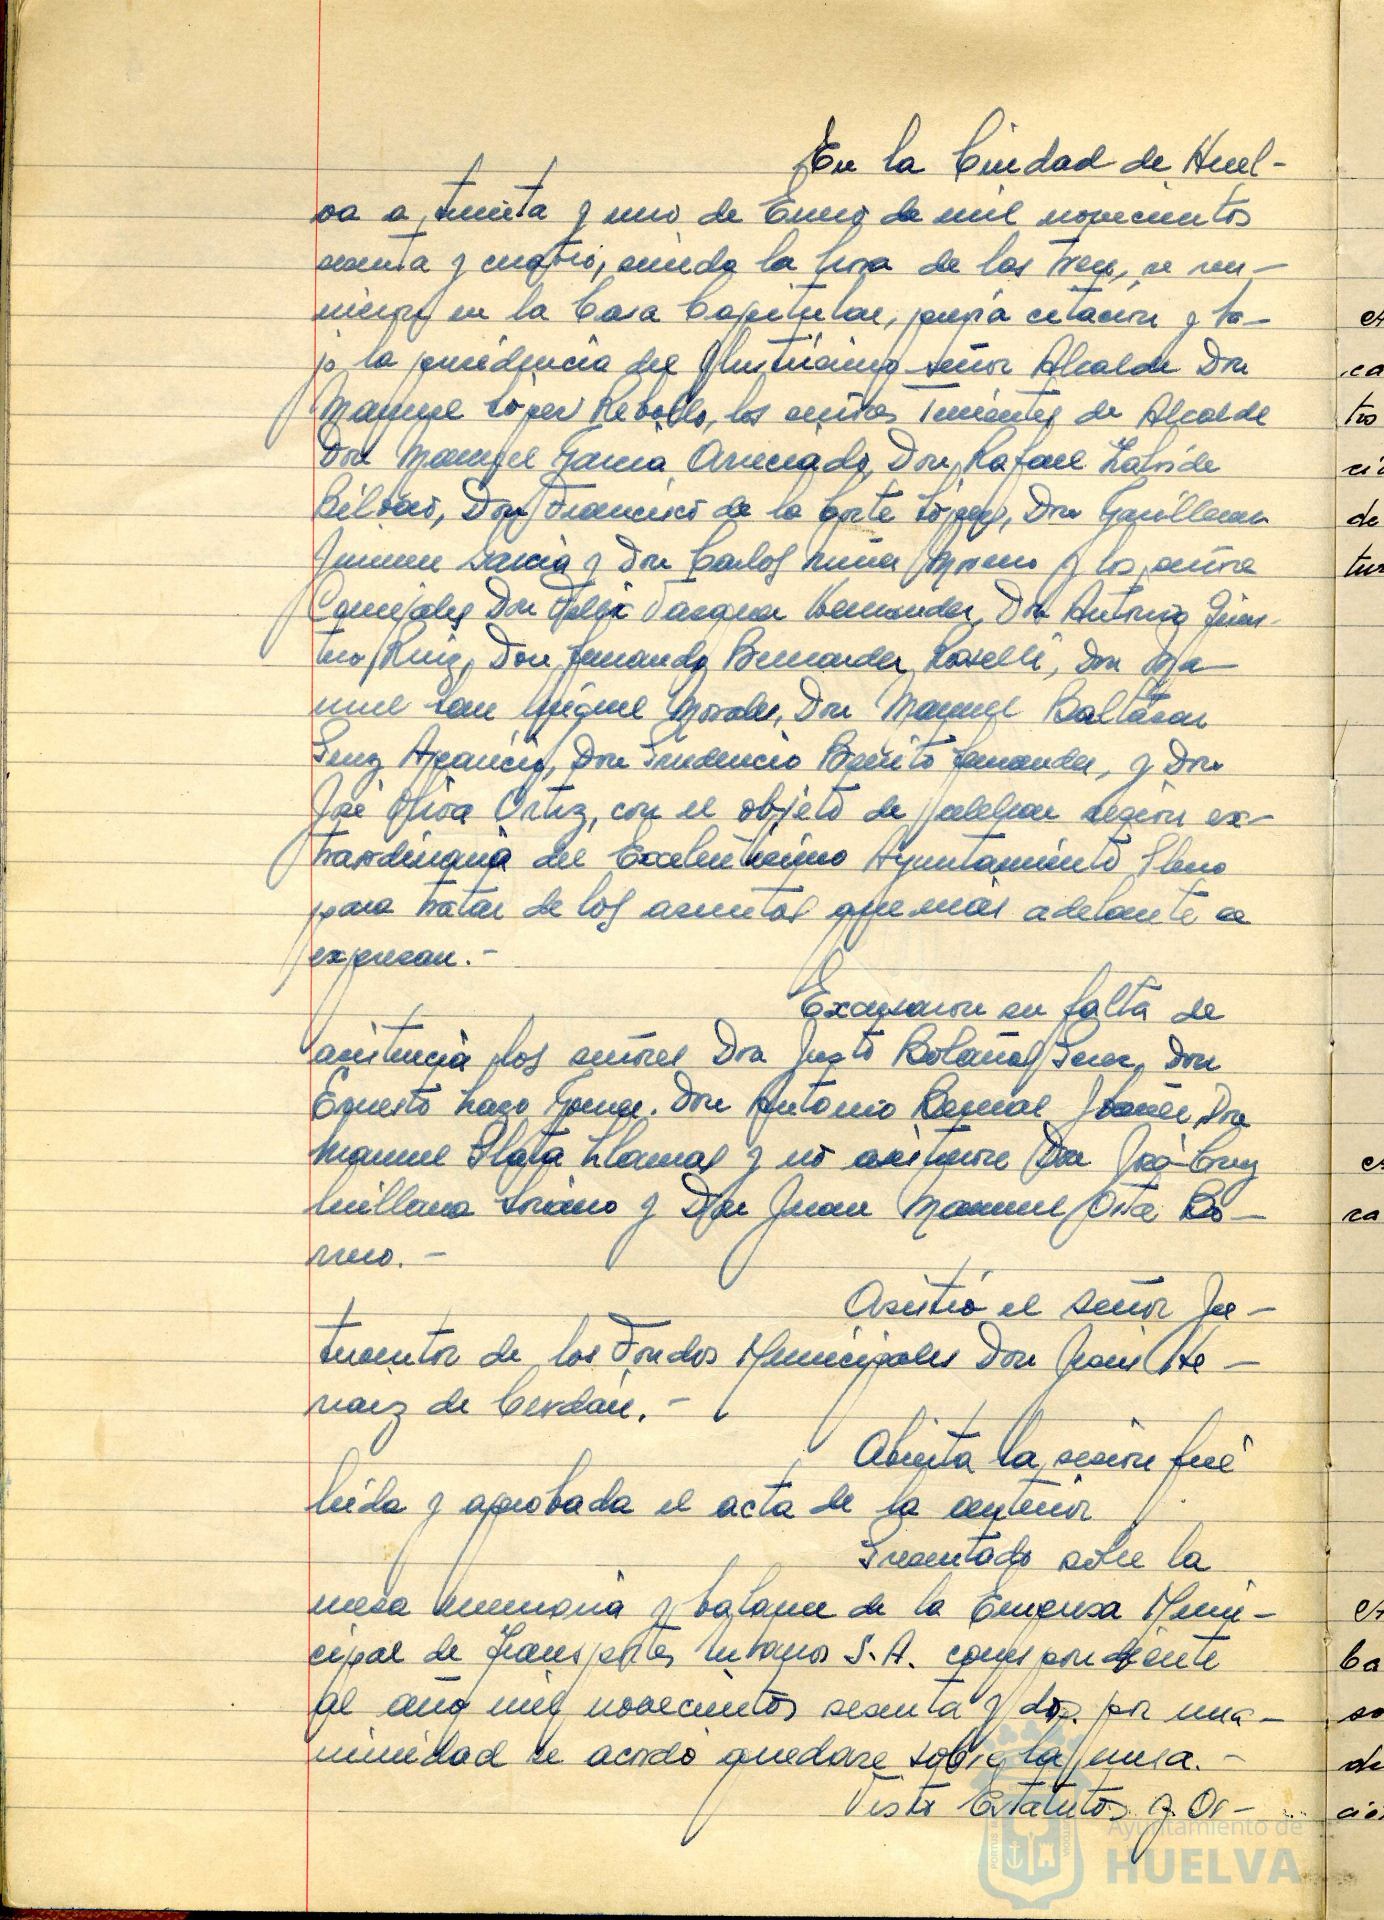 En la Ciudad de Huel-
va a treinta y uno de Enero de mil novecientos
sesenta y cuatro, siendo la hora de las trece, se reu-
nieron en la Casa Capitular, previa citación y ba-
jo la presidencia del Ilustrísimo señor Alcalde Don
Manuel López Rebollo, los señores Tenientes de Alcalde
Don Manuel García Asenciado, Don Rafael Laviede
Bilbao, Don Francisco de la Corte López, Don Guillermo
Jimenez García y Don Carlos Nuñez Moreno y los señores
Concejales Don Felix Vazquez Hernandez, Don Antonio
Ruiz, Don Fernando Bernardez Roselli, Don Ma-
nuel San Miguel Morales, Don Manuel Baltasar
Perez Aparicio, Don Prudencio Benito Fernandez, y Don
José Oliva Ortiz, con el objeto de celebrar sesión ex-
traordinaria del Excelentísimo Ayuntamiento Pleno
para tratar de los asuntos que más adelante se
expresan.-
Excusaron su falta de
asistencia los señores Don Justo Bolaños Perez, Don
Ernesto Lazo Gomez. Don Antonio Bernal Don
Manuel Plata Llamas y no asistieron Don José Cruz
Millana Soriano y Don Juan Manuel Osta Bo-
rrero.-
Asistió el señor In-
terventor de los Fondos Municipales Don Jesús He-
rraiz de Cerdán.-
Abierta la sesión fué
leida y aprobada el acta de la anterior
Presentado sobre la
mesa memoria y balance de la Empresa Muni-
cipal de Transportes Urbanos S.A. correspondiente
al año mil novecientos sesenta y dos. por una-
nimidad se acordó quedase sobre la mesa.-
Visto Estatutos y Or-
Ayuntamiento de
HUELVA